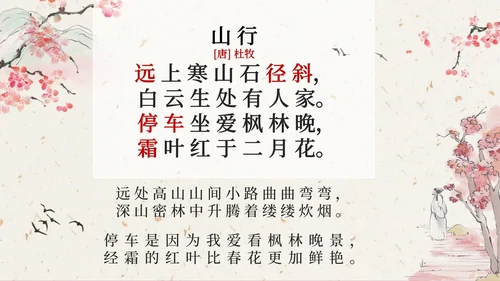 山行
[唐] 杜牧
远上寒山石径斜，
白云生处有人家。
停车坐爱枫林晚，
霜叶红于二月花。
远处高山山间小路曲曲弯弯，
深山密林中升腾着缕缕炊烟。
停车是因为我爱看枫林晚景，
经霜的红叶比春花更加鲜艳。